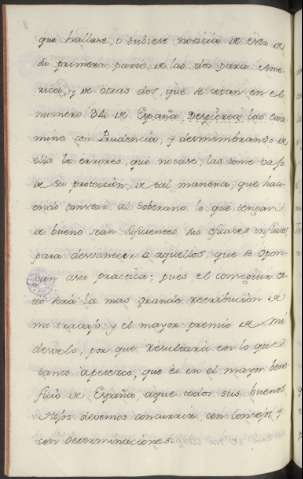 que hallase, o hubiese noticia de esta es-
de primera parte de las dos para Ame-
rica, y de otras dos, que se tratan en el
numero 84 de España,                las exa-
mine con Prudencia, y desmembrando de
ella lo errores, que notare, las tome bajo
de su proteccion, de tal manera, que hac-
iendo conocer al Soberano lo que tengan
de bueno sean                sus
para desvanecer a aquellos, que se opon-
gan a su practica; pues el conseguir es-
to será la mas grande retribucion de
mi trabajo, y el mayor premio de mi
desvelo, por que resultaria con lo que
tanto apetezco, que es en el mayor bene-
ficio de España, a que todos sus buenos
Hijos devemos concurrir con consejos, y
con determinaciones.